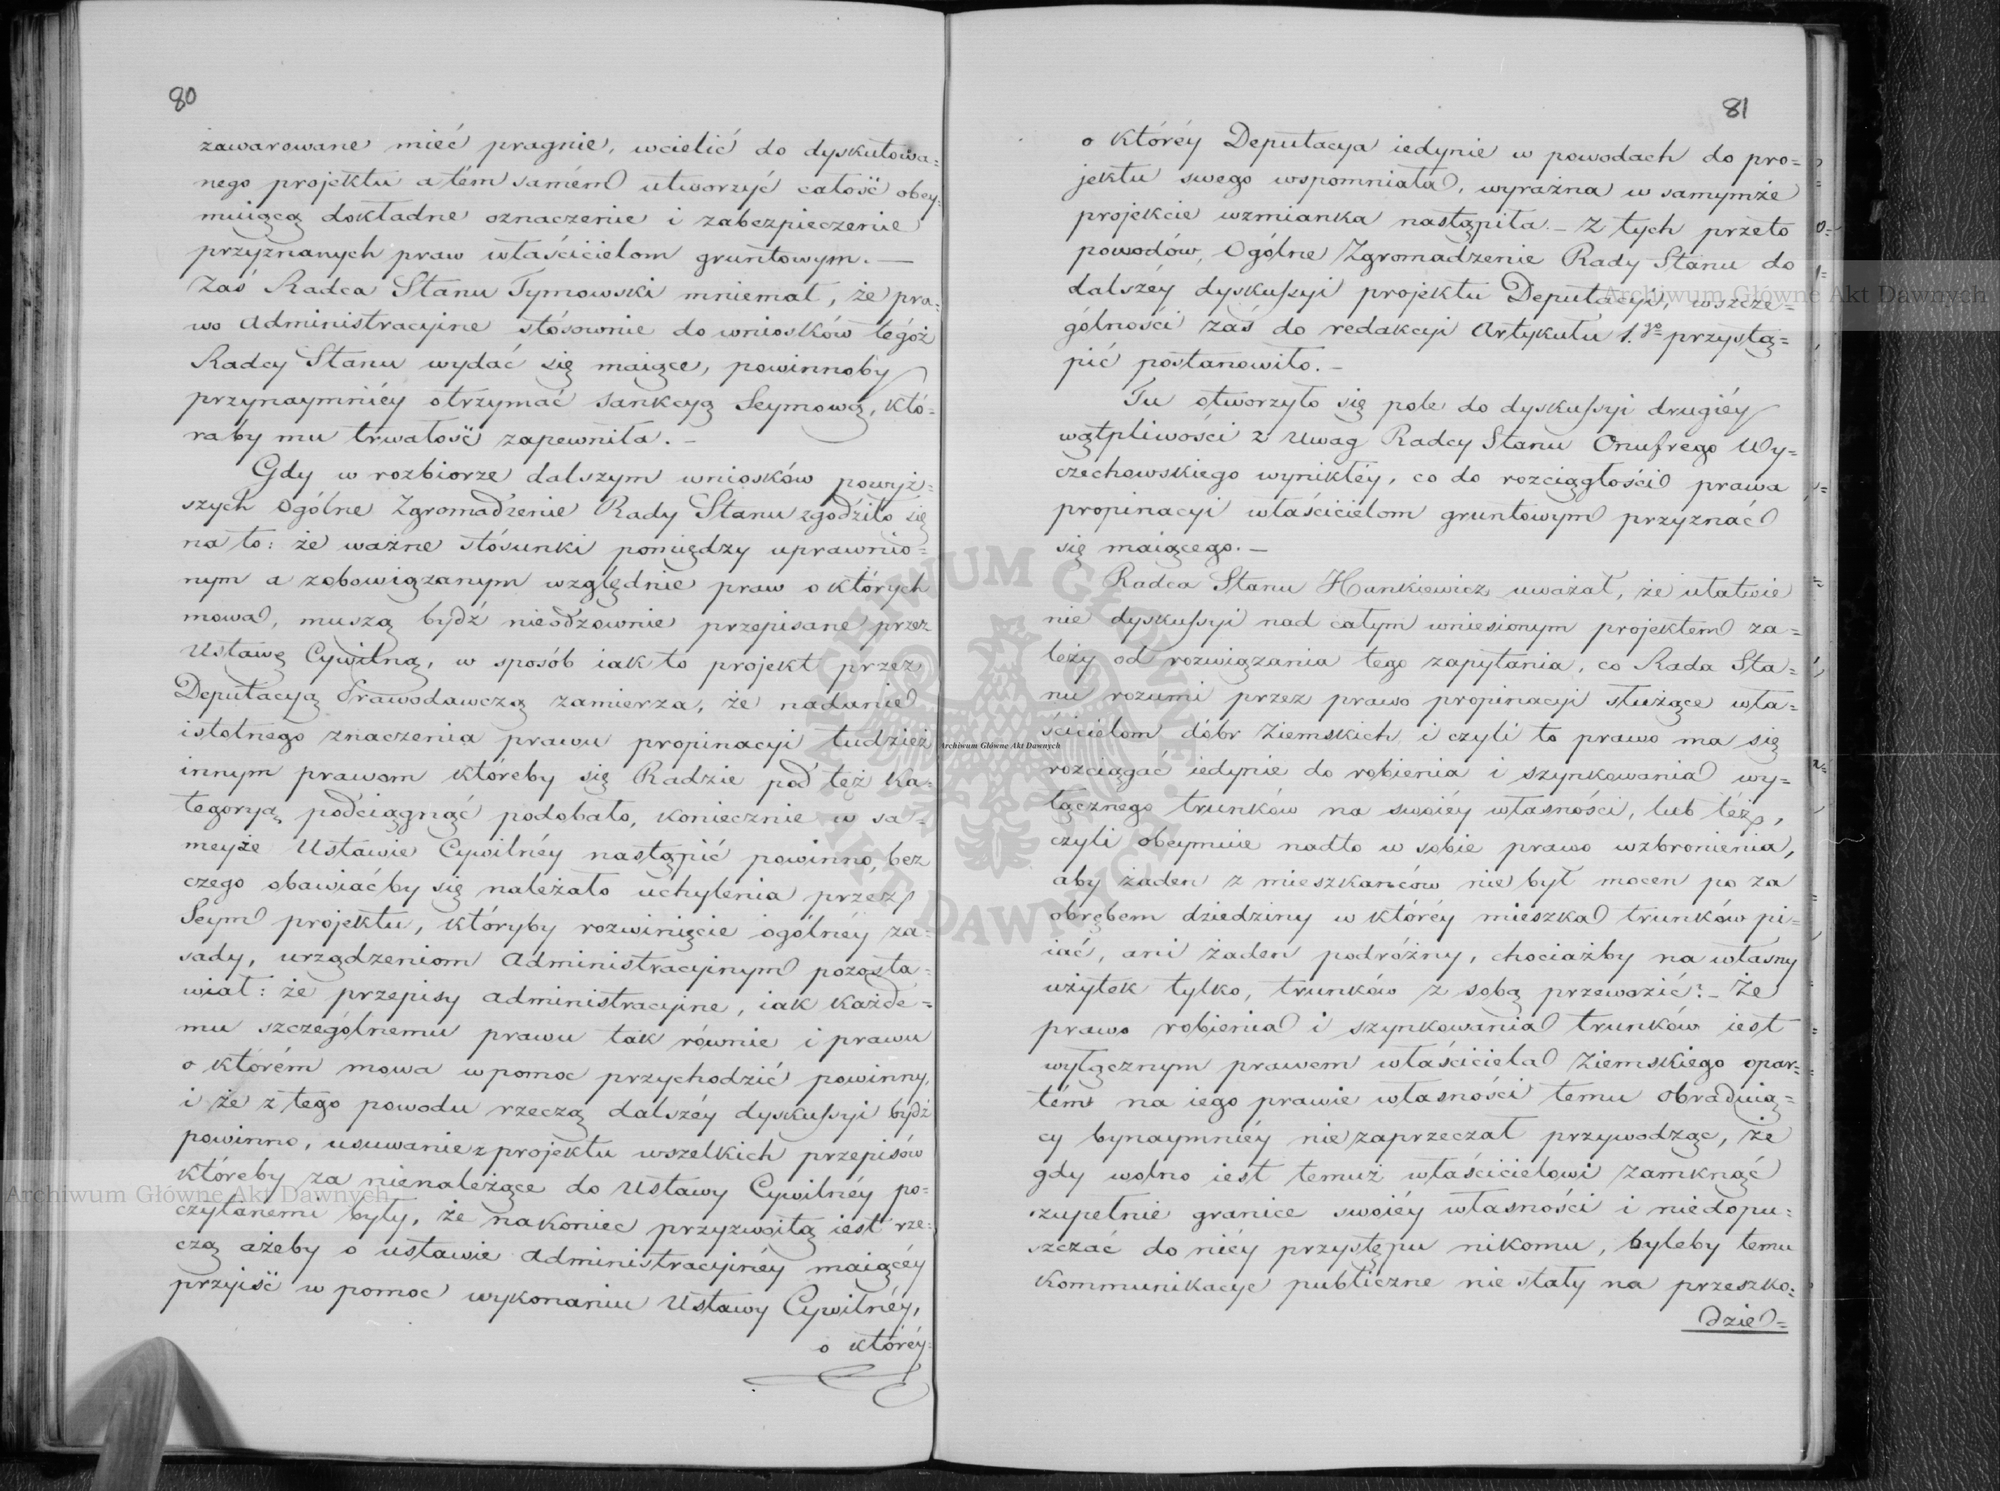 80
zawarowane mieć pragnie, wcielić do dyskutowa=
nego projektu a tém samém utworzyć całość obey=
muiącą dokładne oznaczenie i zabezpieczenie
przyznanych praw właścicielom gruntowym. —
Zaś Radca Stanu Tymowski mniemał, że pra=
wo Administracyine stósownie do wniosków tegóż
Radcy Stanu wydać się maiące, powinnoby
przynaymniéy otrzymać sankcyą Seymową, któ=
raby mu trwałość zapewniła. —
Gdy w rozbiorze dalszym wniosków powyż=
szych Ogólne Zgromadzenie Rady Stanu zgodziło się
na to: że ważne stósunki pomiędzy uprawnio=
nym a zobowiązanym względnie praw o których
mowa, muszą bydź nieodzownie przepisane przez
Ustawę Cywilną, w sposób iak to projekt przez
Deputacyą Prawodawczą zamierza, że nadanie
istotnego znaczenia prawu propinacyi tudzież
innym prawom któreby się Radzie pod też ka=
tegoryą podciągnąć podobało, koniecznie w sa=
meyże Ustawie Cywilnéy nastąpić powinno, bez
czego obawiaćby się należało uchylenia przez
Seym projektu, któryby rozwinięcie ogólnéy za=
sady, urządzeniom Administracyinym pozosta=
wiał: że przepisy administracyine, iak każde=
mu szczególnemu prawu tak równie i prawu
o którém mowa w pomoc przychodzić powinny,
i że z tego powodu rzeczą dalszéy dyskussyi bydź
powinno, usuwanie z projektu wszelkich przepisów
któreby za nienależące do Ustawy Cywilnéy po=
czytanemi były, że nakoniec przyzwoitą iest rze=
czą ażeby o ustawie Administracyinéy maiącéy
przyiść w pomoc wykonaniu Ustawy Cywilnéy,
o któréy
81
o któréy Deputacya iedynie w powodach do pro=
jektu swego wspomniała, wyraźna w samymże
projekcie wzmianka nastąpiła. — Z tych przeto
powodów, Ogólne Zgromadzenie Rady Stanu do
dalszéy dyskussyi projektu Deputacyi, wszcze=
gólności zaś do redakcyi Artykułu 1.go przystą=
pić postanowiło. —
Tu otworzyło się pole do dyskussyi drugiéy
wątpliwości z Uwag Radcy Stanu Onufrego Wy=
czechowskiego wynikłéy, co do rozciągłości prawa
propinacyi właścicielom gruntowym przyznać
się maiącego. —
Radca Stanu Hankiewicz uważał, że ułatwie
nie dyskussyi nad całym wniesionym projektem za=
leży od rozwiązania tego zapytania, co Rada Sta=
nu rozumi przez prawo propinacyi służące wła=
ścicielom dóbr Ziemskich i czyli to prawo ma się
rozciągać iedynie do robienia i szynkowania wy=
łącznego trunków na swoiéy własności, lub téż,
czyli obeymuie nadto w sobie prawo wzbronienia,
aby żaden z mieszkańców nie był mocen po za
obrębem dziedziny w któréy mieszka trunków pi=
iać, ani żaden podróżny, chociażby na własny
użytek tylko, trunków z sobą przewozić? — Że
prawo robienia i szynkowania trunków iest
wyłącznym prawem właściciela Ziemskiego opar=
tém na iego prawie własności temu obraduią=
cy bynaymniéy nie zaprzeczał przywodząc, że
gdy wolno iest temuż właścicielowi zamknąć
zupełnie granice swoiéy własności i niedopu=
szczać do niéy przystępu nikomu, byleby temu
Kommunikacye publiczne nie stały na przeszko=
dzie=
Archiwum Główne Akt Dawnych
Archiwum Główne Akt Dawnych
Archiwum Główne Akt Dawnych
ARCHIWUM GŁÓWNE AKT DAWNYCH